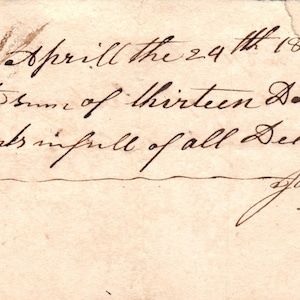 Aprill the 29th 18
sum of thirteen Do
in full of all De